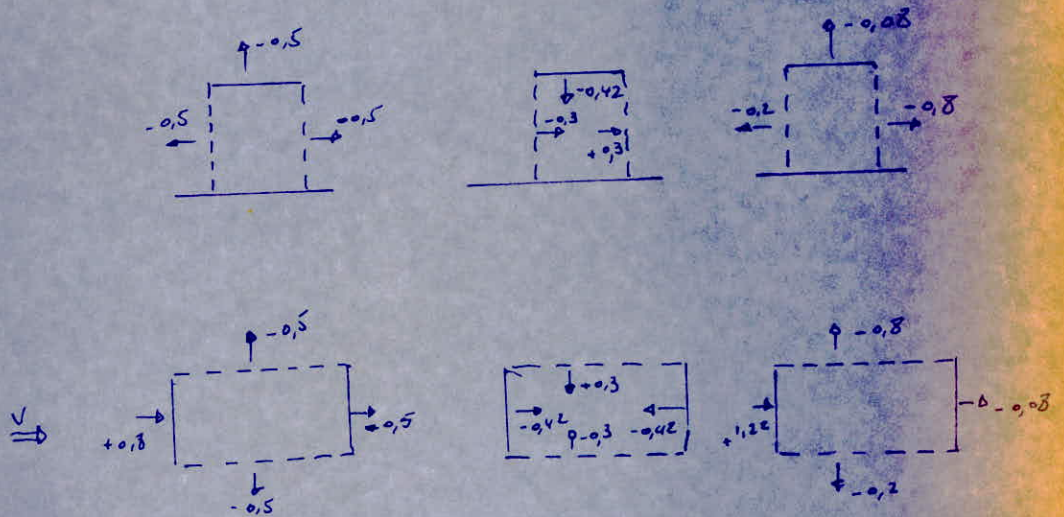 -0,5
-0,5
-0,5
-0,42
-0,3
+0,3
-0,08
-0,2
-0,8
-0,5
V
+0,8
-0,5
-0,5
+0,3
-0,42
-0,3
-0,42
-0,8
+1,22
-0,08
-0,2